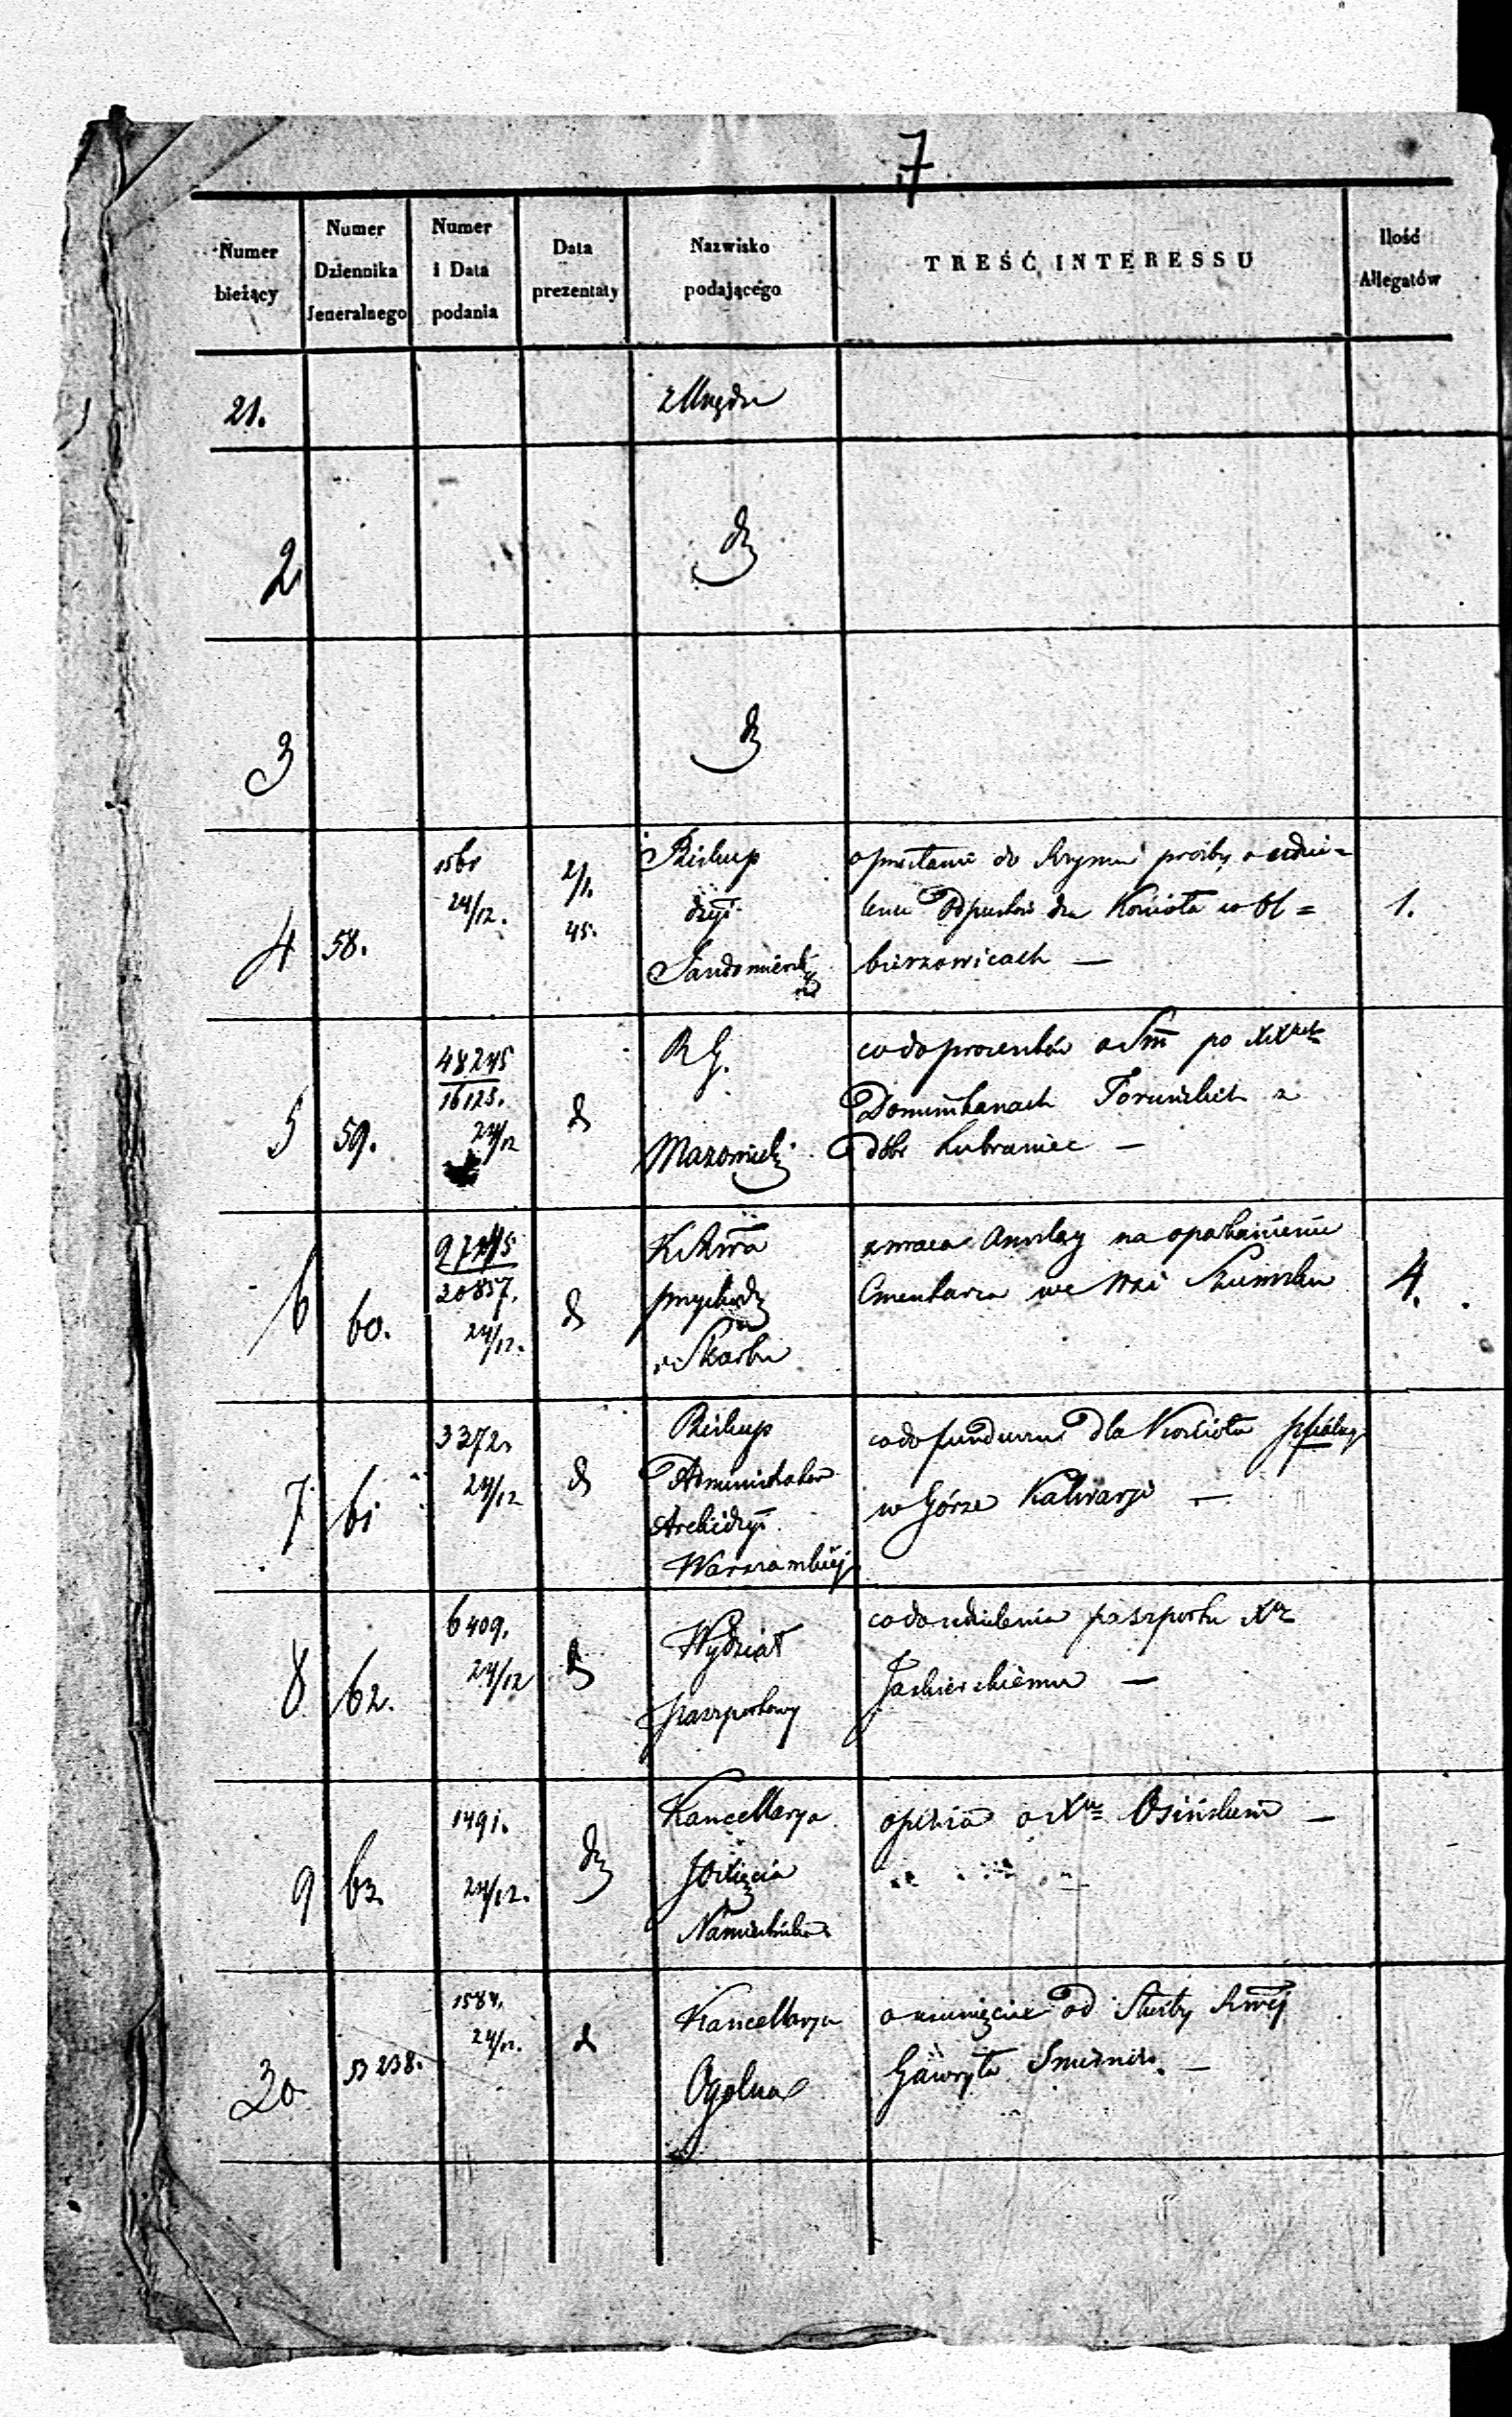 7
Numer bieżący
Numer Dziennika Jeneralnego
Numer i Data podania
Data prezentaty
Nazwisko podającego
TREŚĆ INTERESSU
Ilość Allegatów
21.
z Urzędu
2
3
4
58.
24/12.
2/1.
45.
Biskup
dyi.
Sandomierski
o przesłanie do Rzymu prośby o udzie=
lenie Odpustów dla Kościoła w Ol=
bierzowicach —
1.
5
59.
48245
16123.
24/12
R G.
Mazowiecki
co do procentów od Sm̃ po XX
Dominikanach Toruńskich z
dóbr Lubraniec —
6
60.
20857.
24/12.
przychodów
Skarbu
zwraca anszlag na oparkanienie
Cmentarza we Wsi
4.
7
61
3372.
24/12
Biskup
Administrator
Archidyi.
Warszawskiej
co do funduszu dla Kościoła
w Górze Kalwarji —
8
62.
6409.
24/12
Wydział
paszportowy
co do udzielenia paszportu Xu
9
63.
1491.
24/12.
Kancellarya
JO Xięcia
Namiestnika
opinia o Xu Osińskim —
30
53238.
1584.
24/12.
Kancellarya
Ogolna
o usunięcie od Służby
Gawryła —